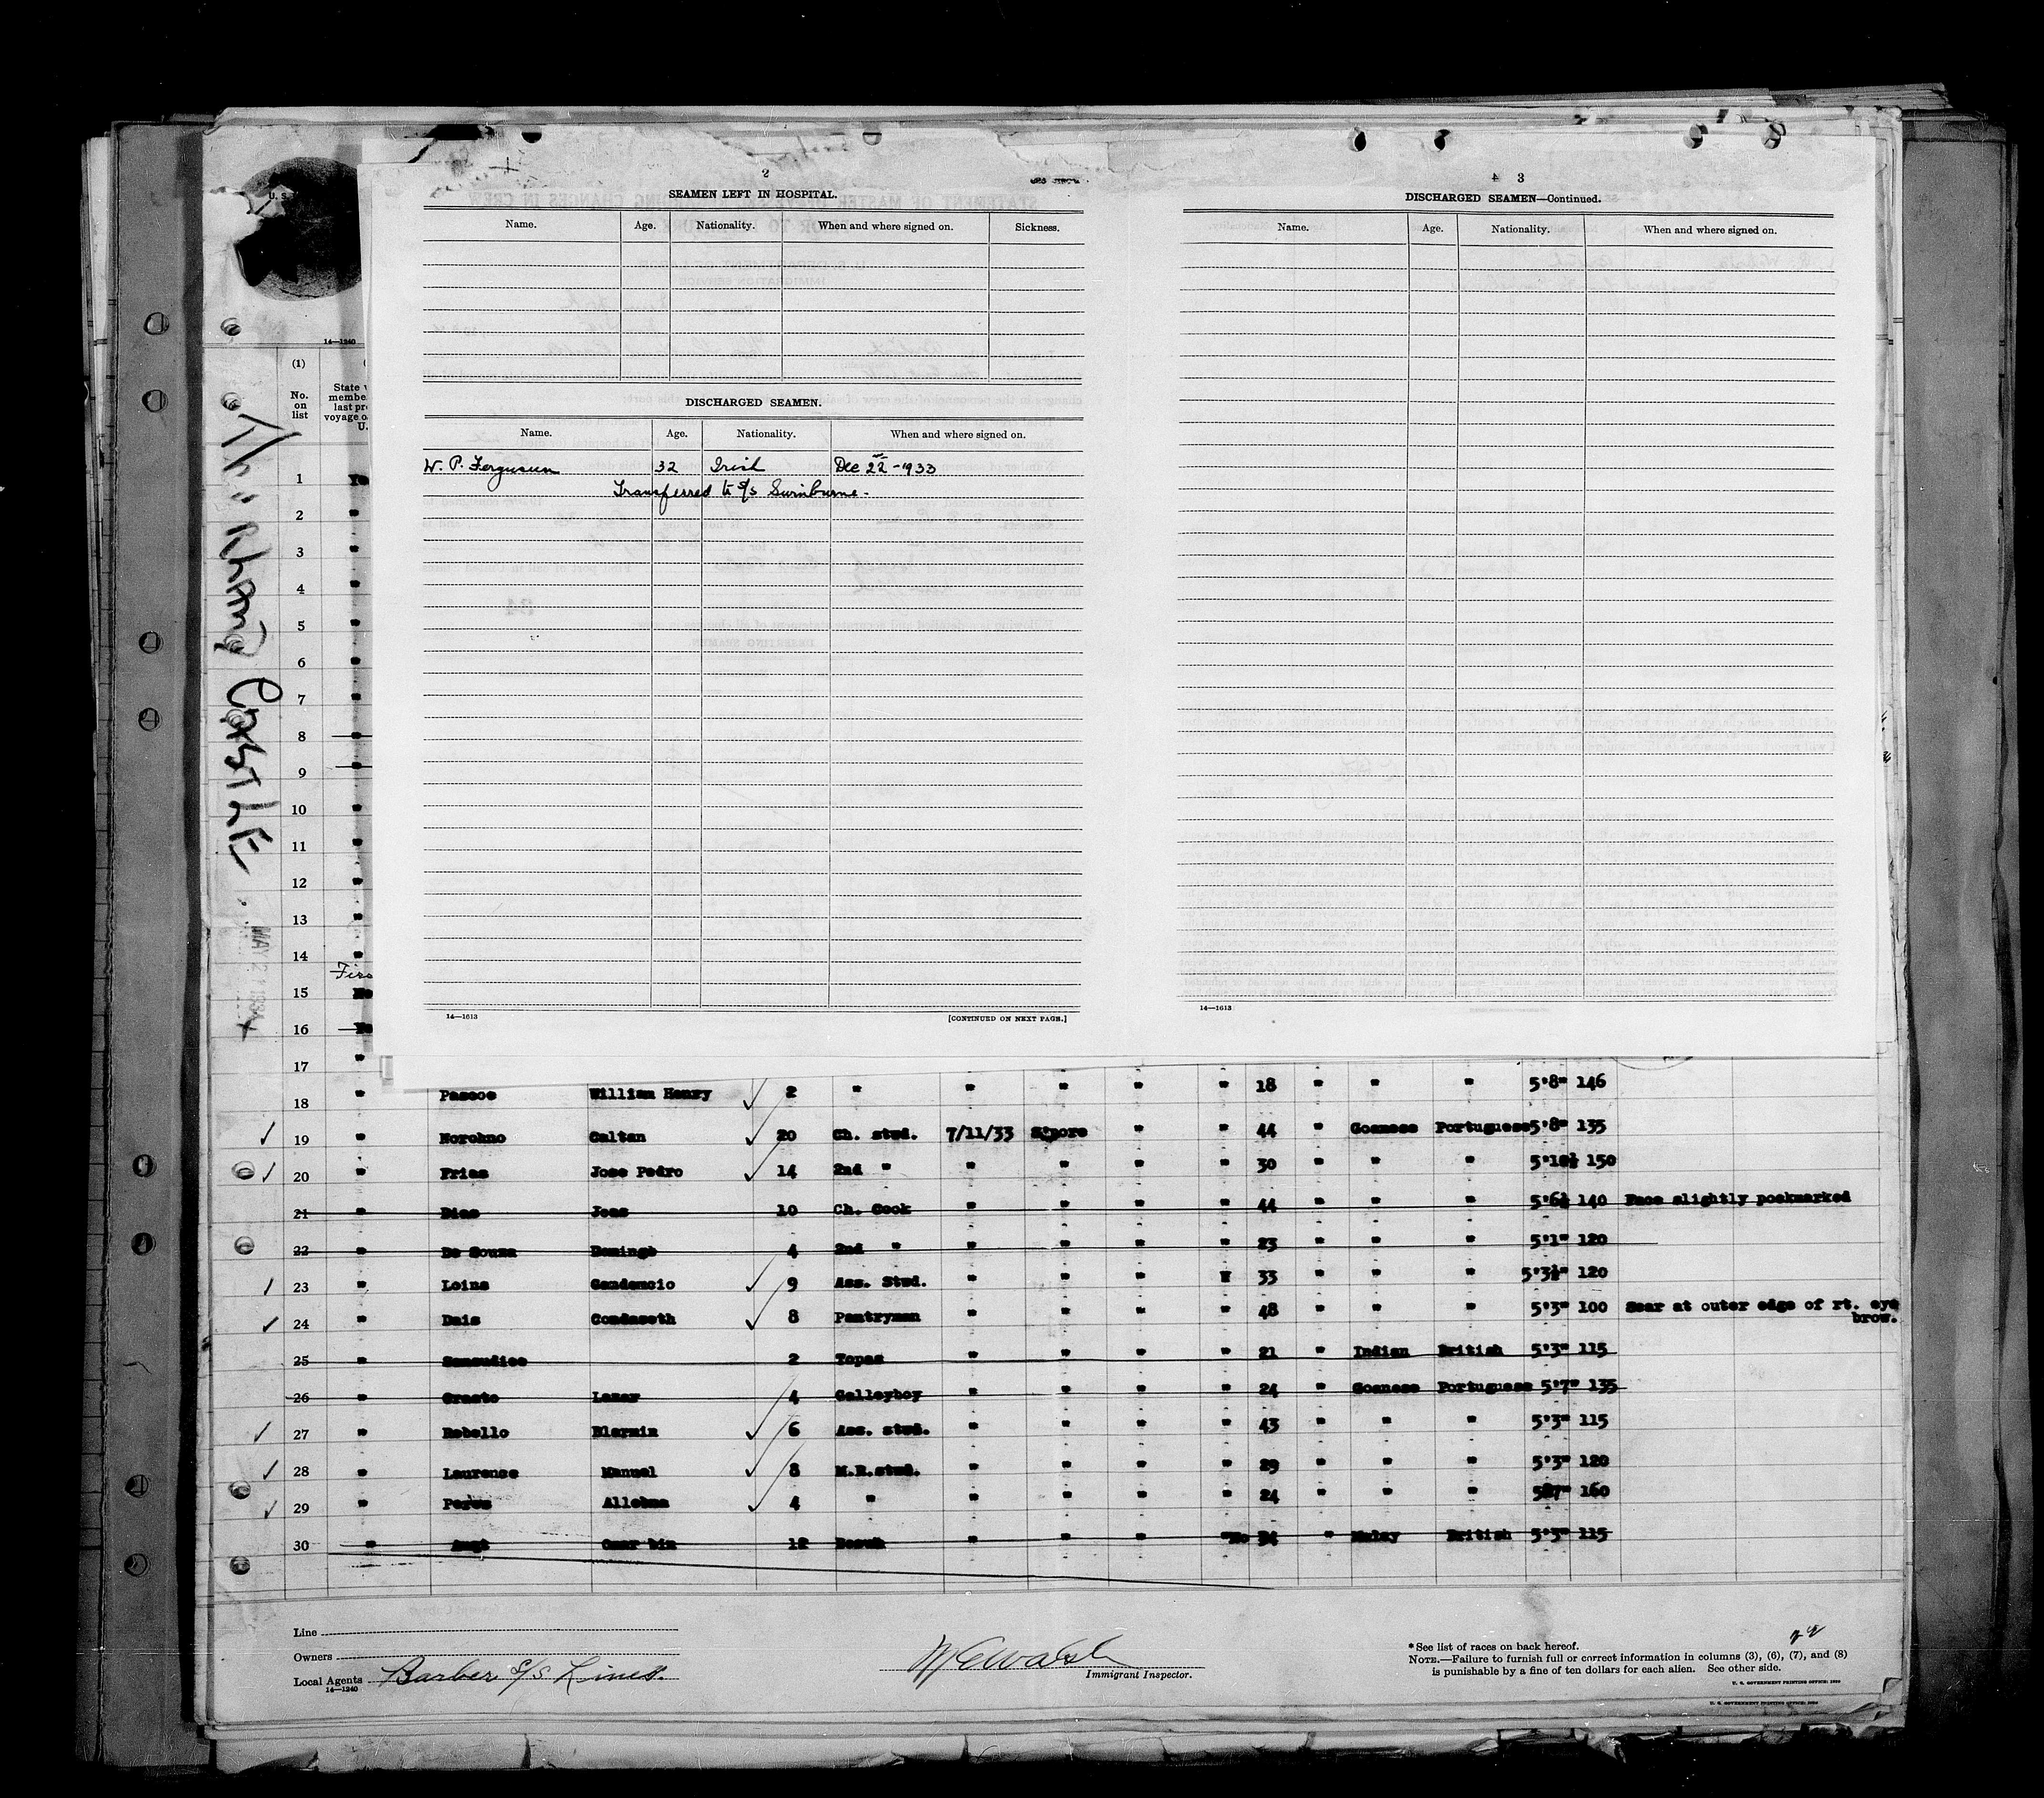 2
SEAMEN LEFT IN HOSPITAL.
Name. Age. Nationality. When and where signed on. Sickness.
DISCHARGED SEAMEN.
Name. Age. Nationality. When and where signed on.
W. P. Ferguson 32 Irish Dec 22 - 1933
Transferred to s/s Swinburne.
14—1613
[CONTINUED ON NEXT PAGE.]
3
DISCHARGED SEAMEN—Continued.
Name. Age. Nationality. When and where signed on.
14—1613
U. S.
14—1240
(1)
No. on list
State
membe
last pr
voyage o
U.
CASTLE
MAY 2
1
2
3
4
5
6
7
8
9
10
11
12
13
14
Firs
15 No
16 Ye
17
18 " Pascoe William Henry 2 " " " " " 18 " " " 5'8" 146
19 " Norohno Caltan 20 Ch. stud. 7/11/33 S'pore " " 44 " Goanese Portuguese 5'8" 135
20 " Frias Jose Pedro 14 2nd " " " " " 30 " " " 5'10½ 150
21 " Dias Joas 10 Ch. Cook " " " " 44 " " " 5'6½ 140 Face slightly pockmarked
22 " De Souza Domingo 4 2nd " " " " " 23 " " " 5'1" 120
23 " Loina Gendencio 9 Ass. Stud. " " " " 33 " " " 5'3½" 120
24 " Dais Condaseth 8 Pantryman " " " " 48 " " " 5'3" 100 Scar at outer edge of rt. eye
brow.
25 " 2 Topaz " " " " 21 " Indian British 5'3" 115
26 " Crasto Lazar 4 Galleyboy " " " " 24 " Goanese Portuguese 5'7" 135
27 " Rebello Blarmin 6 Ass. stud. " " " " 43 " " " 5'3" 115
28 " Laurense Manuel 8 M.R.stud. " " " " 29 " " " 5'3" 120
29 " Peres 4 " " " " " 24 " " " 160
30 " Omar bin 12 " " " "No " Malay British 5'3" 115
Line
Owners
Local Agents Barber S/S Lines.
14—1240
W E Walsh
Immigrant Inspector.
*See list of races on back hereof.
NOTE.—Failure to furnish full or correct information in columns (3), (6), (7), and (8)
is punishable by a fine of ten dollars for each alien. See other side.
U. S. GOVERNMENT PRINTING OFFICE
U. S. GOVERNMENT PRINTING OFFICE